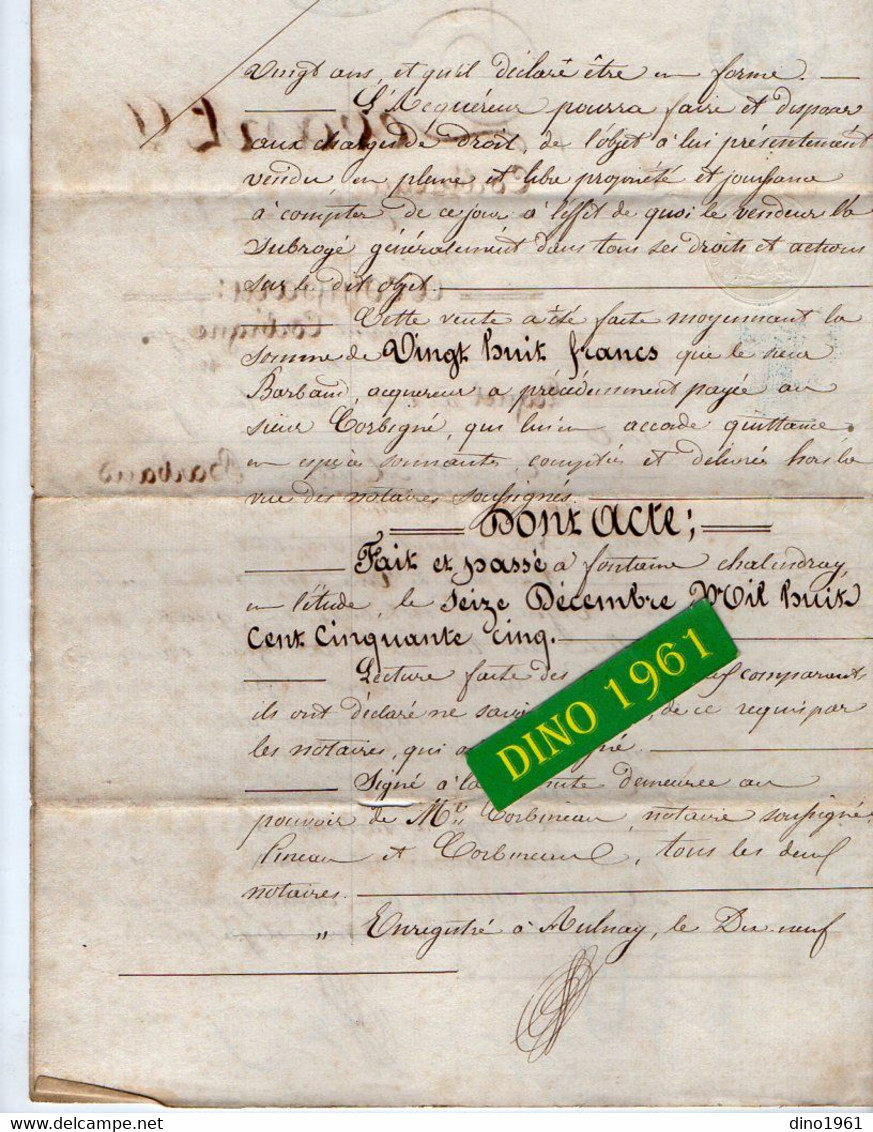 Vingt ans, et qu'il déclare être en forme.
L'Acquéreur pourra faire et disposer
aux charges de droit de l'objet à lui présentement
vendu en pleine et libre propriété et jouissance
à compter de ce jour à l'effet de quoi le vendeur l'a
subrogé généralement dans tous ses droits et actions
sur le dit objet.
Cette vente a été faite moyennant la
somme de Vingt huit francs que le sieur
Barbaud, acquereur a précédemment payée au
sieur Corbigné, qui lui en accorde quittance
en espèces sonnantes, comptées et délivrées hors la
vue des notaires soussignés.
Dont Acte;
Fait et passé à fontaine chalendray,
en l'étude, le Seize Décembre Mil huit
Cent Cinquante Cinq.
Lecture faite des comparants
ils ont déclaré ne de ce requis par
les notaires, qui
Signé à la demeurée au
pouvoir de Me Corbineau, notaire soussigné.
Pineau et Corbineau, tous les deux
notaires.
„ Enregistré à Aulnay, le Dix-neuf
DINO 1961
Barbaud
delcampe.net
dino1961